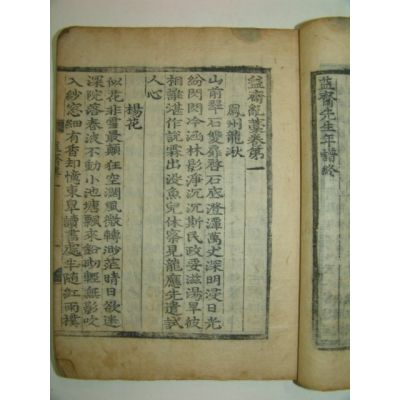 益齋先生年譜終
益齋亂藁卷第一
鳳州龍湫
山前翠石雙扉啓石底澄潭萬丈深明浸日光
紛閃閃冷涵林影淨沉沉斯民政要滋湯旱彼
相誰堪作說霖出沒魚兒休察見龍應先遣試
人心
楊花
似花非雪最顚狂空濶風微轉渺茫晴日欲迷
深院落春波不動小池塘飄來鉛砌輕無影吹
入紗窓細有香却憶東皐讀書處半隨紅雨撲